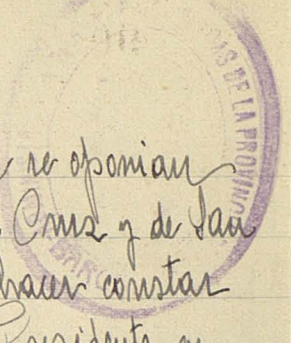 AS DE LA PROVINC
BARC
se oponian
Cruz y de San
hacer constar
Presidente